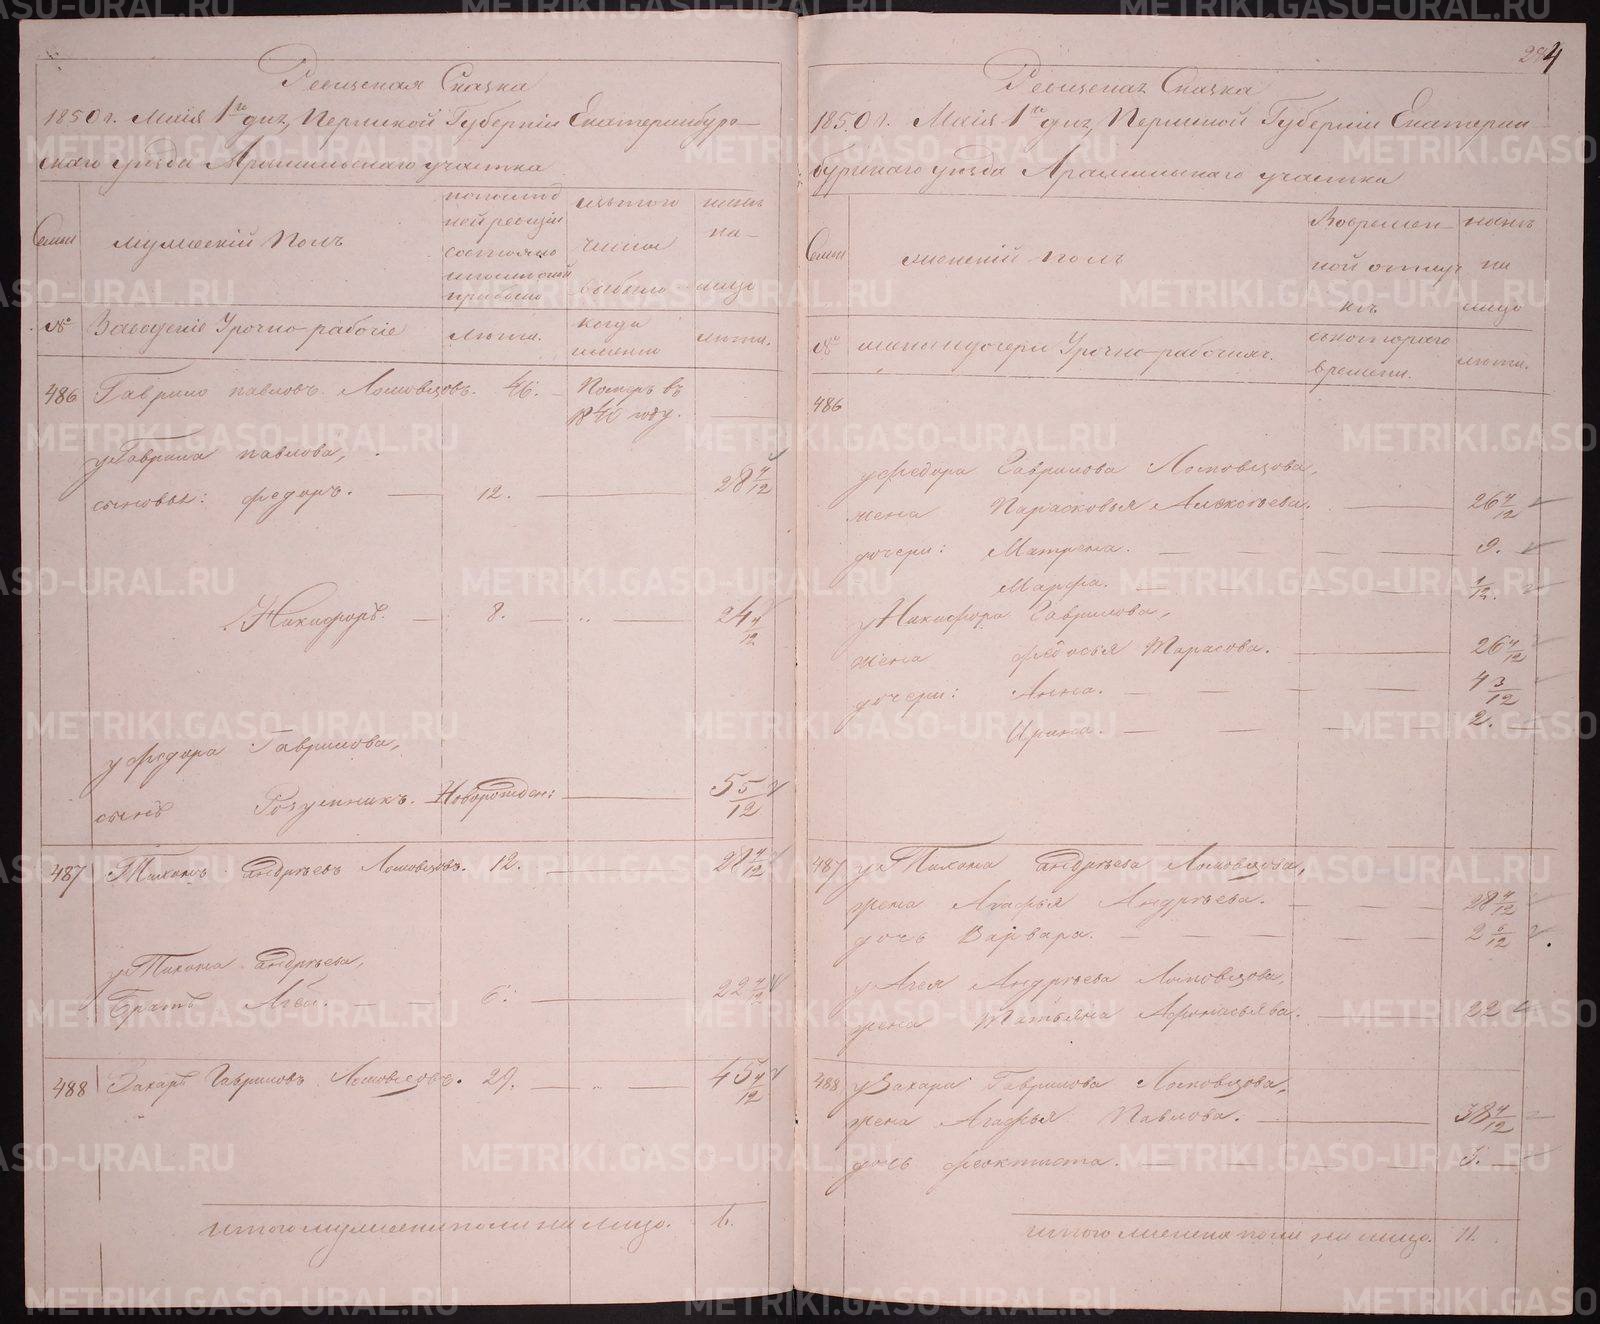 Ревизская Сказка
1850 г. Маия 1го дня, Пермской Губернии Екатеринбург-
скаго уезда Арамильскаго участка
Семьи
мужеский полъ
по послед
ней ревизии
состояло
и после оной
прибыло
изъ того
числа
выбыло
ныне
на-
лицо
№
Заводские Урочно-рабочие
лета.
когда
именно
лета.
486 Гаврило павловъ Ломовцовъ. 46. Померъ въ
1840 году.
у Гаврила павлова,
сыновья: федоръ. 12. 28 4/12
2 Никифоръ. 8. 24 4/12
у Федора Гаврилова,
сынъ Разумникъ. Новорожден: 5 5/12
487 Тихонъ андреевъ Ломовцовъ. 12. 28 4/12
у Тихона андреева,
братъ Агей. 6. 22 4/12
488 Захаръ Гавриловъ Ломовцовъ. 29. 45 4/12
итого мужеска пола на лицо. 6.
284
Ревизская Сказка
1850 г. Маия 1го дня, Пермской Губернии Екатерин-
бургскаго уезда Арамильскаго участка
Семьи
женский полъ
Во времен-
ной отлуч
ке
ныне
на
лицо
№
жены и дочери Урочно-рабочихъ.
съ котораго
времени.
лета.
486
у Федора Гаврилова Ломовцова,
жена Парасковья Алексеева. 26 4/12
дочери: Матрена. 9.
Марфа. 1/12.
у Никифора Гаврилова,
жена федосья Тарасова. 26 4/12
дочери: Анна. 4 3/12
Ирина. 2.
487 у Тихона андреева Ломовцова,
жена Агафья Андреева. 28 4/12
дочь Варвара. 2 6/12
у Агея Андреева Ломовцова,
жена Татьяна Афонасьява. 22
488 у Захара Гаврилова Ломовцова,
жена Агафья Павлова. 38 4/12
дочь феоктиста. 3.
итого женска пола на лицо. 11.
METRIKI.GASO-URAL.RU